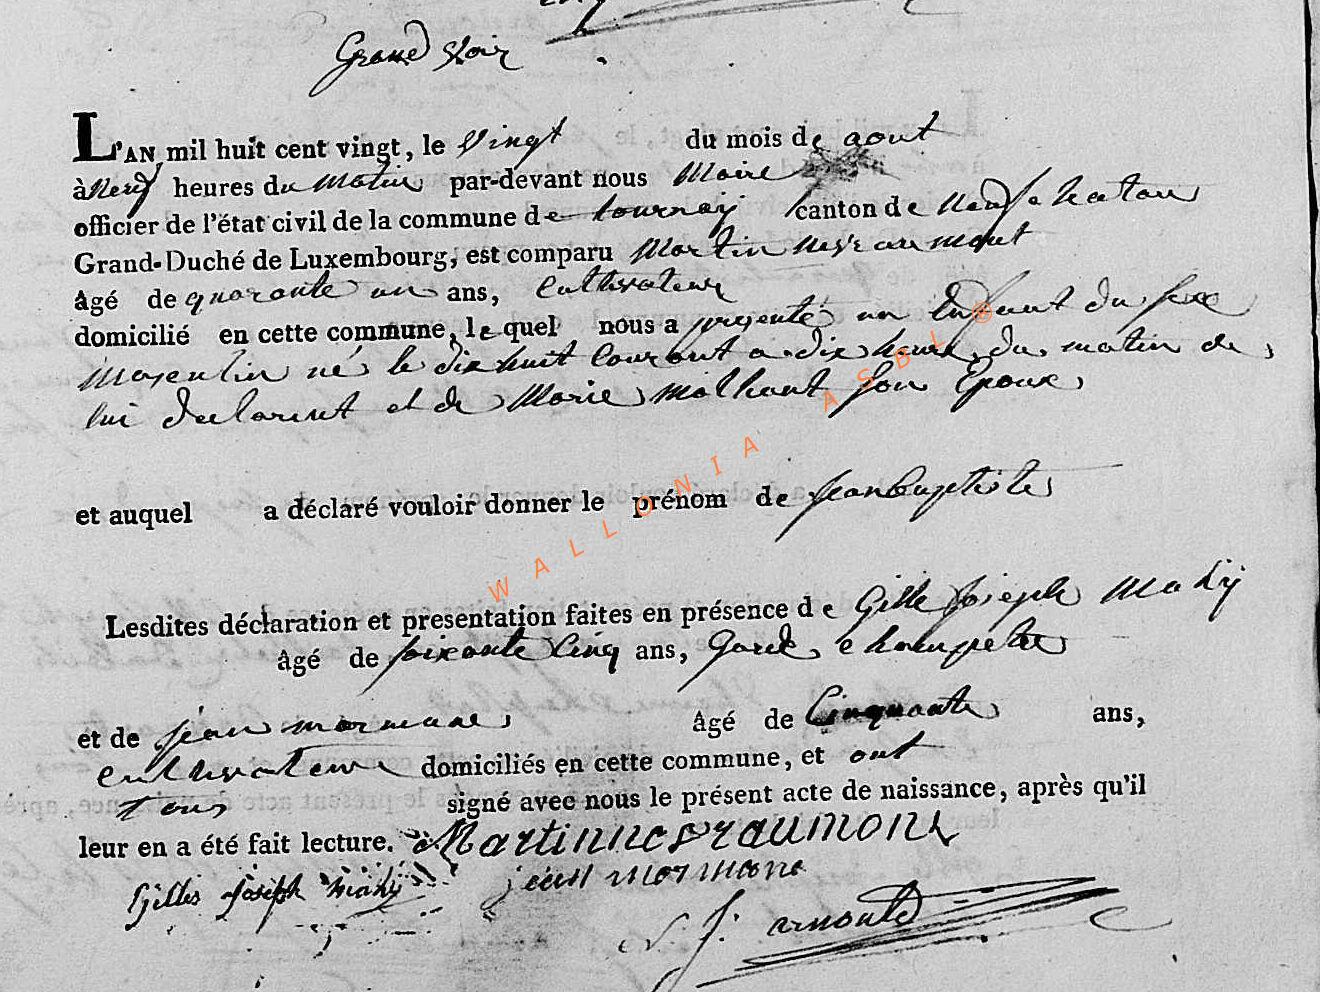 Grand Voir
L'AN mil huit cent vingt, le vingt du mois de aout
à neuf heures du matin par-devant nous Maire
officier de l'état civil de la commune de tournay canton de neufchateau
Grand-Duché de Luxembourg, est comparu Martin nesraumont
âgé de quarante un ans, cultivateur
domicilié en cette commune, lequel nous a presenté un Enfant du sexe
masculin né le dix huit courant a dix heures du matin de
lui declarant et de Marie molhant son Epouse
et auquel a déclaré vouloir donner le prénom de jean baptiste
Lesdites déclaration et presentation faites en présence de Gille joseph Mahy
âgé de soixante cinq ans, garde champetre
et de jean mormane âgé de Cinquante ans,
cultivateur domiciliés en cette commune, et ont
tous signé avec nous le présent acte de naissance, après qu'il
leur en a été fait lecture. Martin nesraumont
Gilles joseph mahy jean mormane
J. arnould
WALLONIA ASBL ®